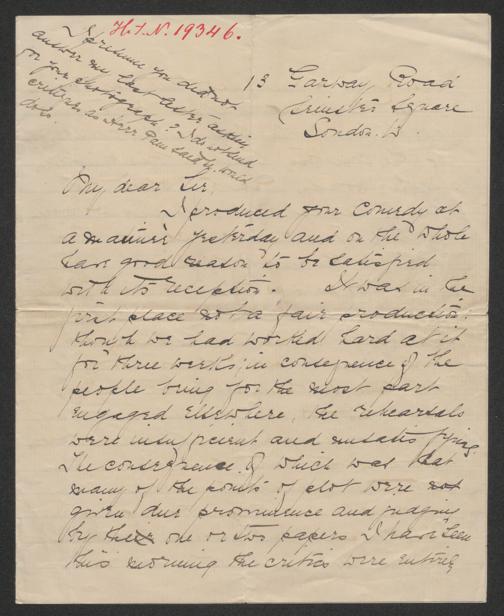 H.I.N. 19346.
I presume you did not
answer my last letter asking
for your photograph? I do not send
critiques as Herr Paul said he would
do so.
13 Garway Road
Leinster Square
London. W.
My dear Sir
I produced your Comedy at
a matinée yesterday and on the whole
have good reason to be satisfied
with its reception. It was in the
first place not a fair production:
though we had worked hard at it
for three weeks; in consequence of the
people being for the most part
engaged elsewhere, the rehearsals
were insufficient and unsatisfying.
The consequence of which was that
many of the points of plot were not
given due prominence and judging
by the one or two papers I have seen
this morning the critics were entirely